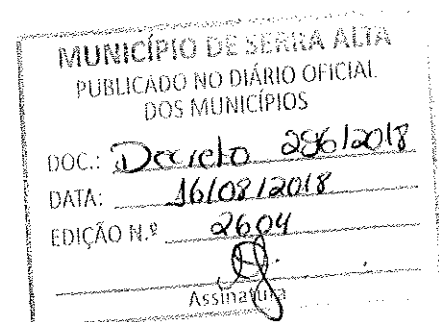 MUNICÍPIO DE SERRA ALTA
PUBLICADO NO DIÁRIO OFICIAL
DOS MUNICÍPIOS
DOC.: Decreto 286/2018
DATA: 16/08/2018
EDIÇÃO N.º 2604
Assinatura